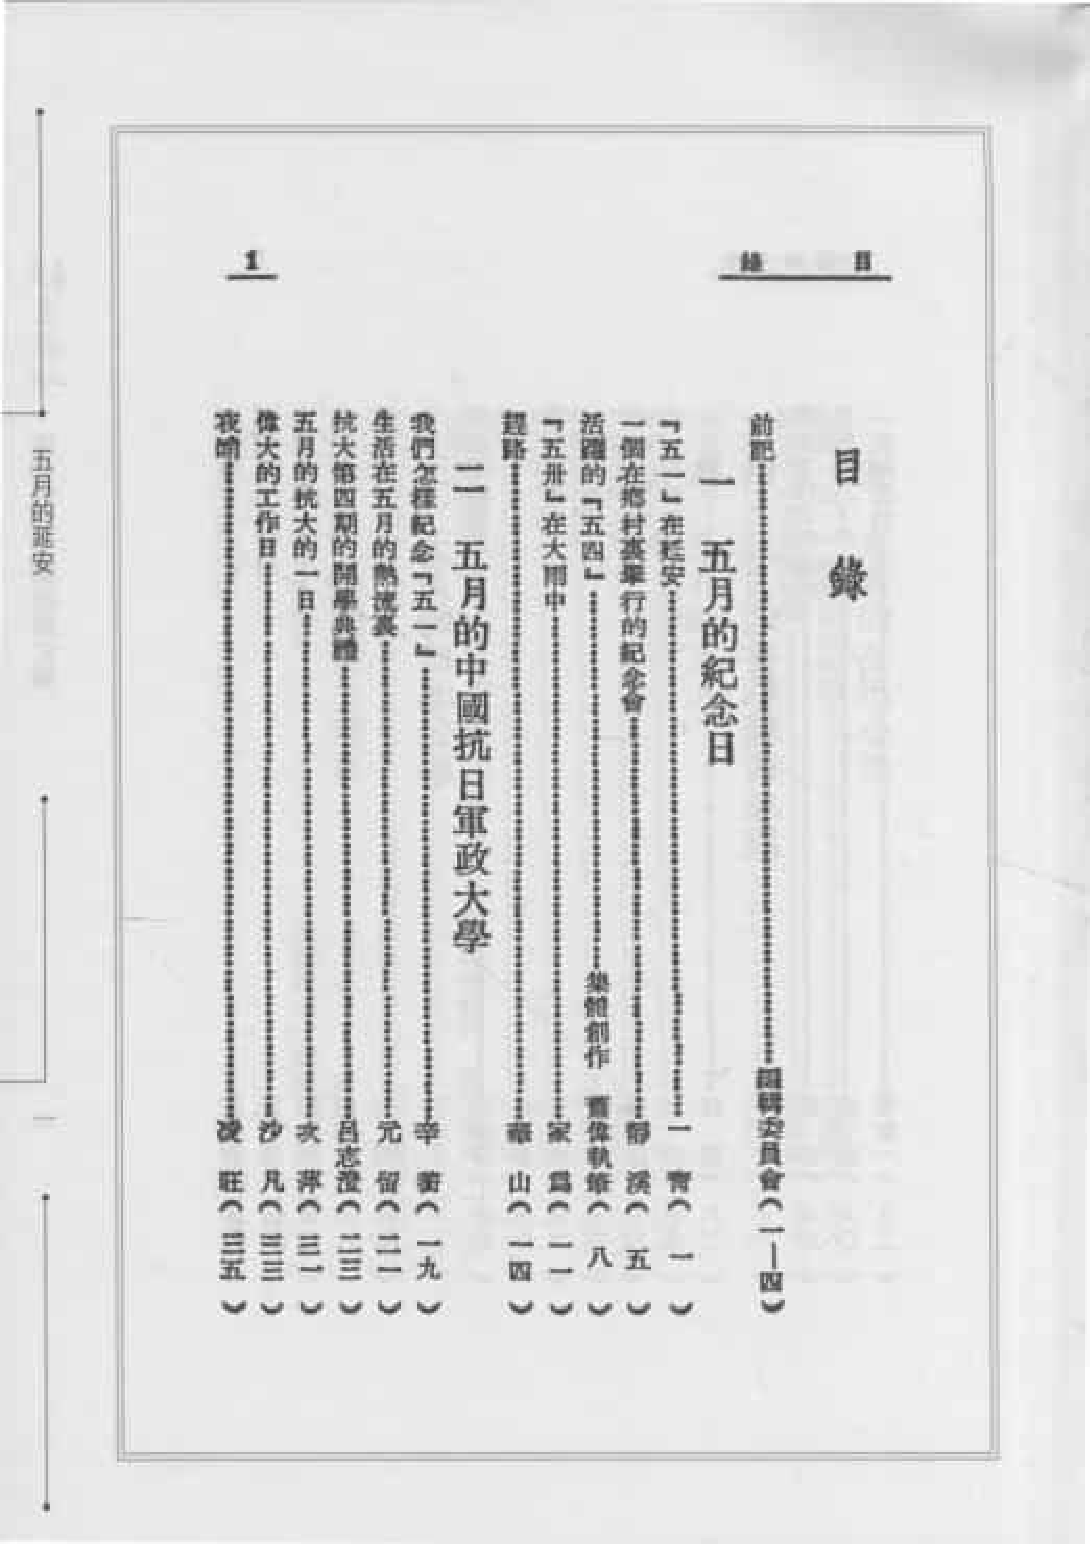 目錄
1
目錄
前記……編輯委員會(一—四)
一 五月的紀念日
『五一』在延安……一 青(一)
一個在鄉村裏舉行的紀念會……靜 溪(五)
活躍的『五四』……集體創作 偉執筆(八)
『五卅』在大雨中……家 爲(一一)
趕路……華 山(一四)
二 五月的中國抗日軍政大學
我們怎樣紀念『五一』……辛 (一九)
生活在五月的熱流裏……元 留(二一)
抗大第四期的開學典禮……呂志澄(二三)
五月的抗大的一日……萍(三一)
偉大的工作日……沙 凡(三三)
夜哨……凌 旺(三五)
五月的延安
一